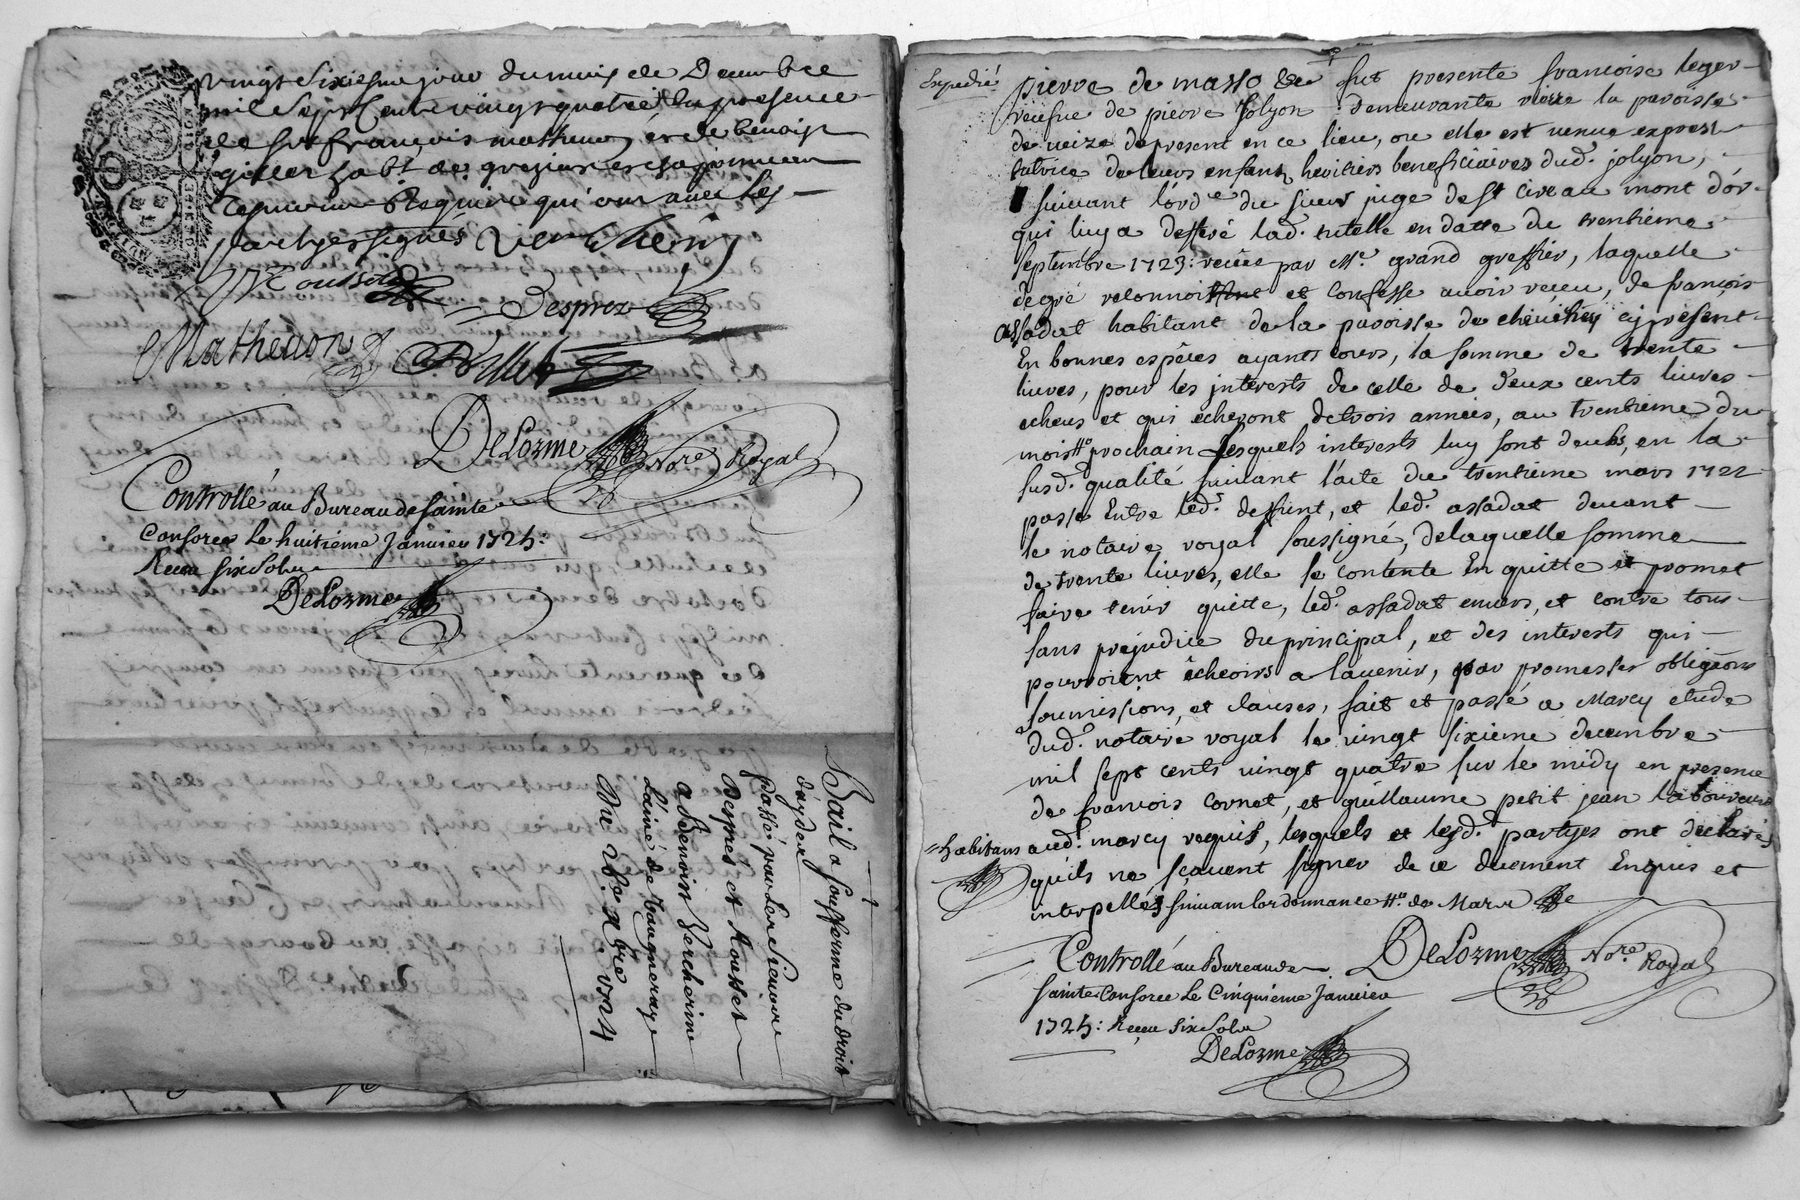 vingt Sixiesme jour du mois de Decembre
mil Sept Cent vingt quatre En presence
de Sr françois matheuon et de benoist
gillet habt de grezieu
requis qui ont avec les
partyes signés Vercherin
Rousset
Desprez
Matheuon
Pillet
DeLorme Nore Royal
Controllé au Bureau de Sainte
Consorce Le huitiéme Janvier 1725:
Receu six Sols
DeLorme
Bail a Soufferme du droit
de leyde
passé par Les Sieurs
Despres et Rousset
a Benoist Vercherin
L'ainé de Vaugneray
Du 26e xbre 1724
Expedié
pierre de masso &c fut presente francoise leger
veusue de pierre Jolyon demeurante riere la paroisse
de ueize depresent en ce lieu, ou elle est venue expres
tutrice de leurs enfants heritiers beneficiaires dud. jolyon,
suiuant l'ord.e du sieur juge de st cire au mont d'or
qui luy a defferé lad. tutelle en datte du trentiéme
septembre 1723: receüe par Me. grand greffier, laquelle
de gré reconnoit et confesse auoir reçeu, de françois
assadat habitant de la paroisse de cheuinay a present
En bonnes espéces ayants cours, la somme de trente
liures, pour les jnterests de celle de deux cents liures
echeus et qui écheront de trois années, au trentieme du
mois prochain Lesquels interests luy sont deubs, en la
susd. qualité suiuant l'acte du trentieme mars 1722
passé Entre led. deffunt, et led. assadat deuant
le notaire royal soussigné, de laquelle somme
de trente liures, elle se contente En quitte et promet
faire tenir quitte, led. assadat enuers, et contre tous
sans prejudice du principal, et des interests qui
pourroient écheoirs a l'auenir, par promesses obligeons
soumissions, et clauses, fait et passé a Marcy etude
dud. notaire royal le vingt sixieme decembre
mil sept cents vingt quatre sur le midy en presence
de francois cornet, et guillaume petit jean laboureurs
=habitans aud. marcy requis, lesquels et lesd. partyes ont declaré
qu'ils ne sçauent signer de ce duement Enquis et
interpellés suiuant lordonnance
Controllé au Bureau de DeLorme Nore Royal
Sainte Consorce Le Cinquieme Janvier
1725: Receu six Sols
DeLorme